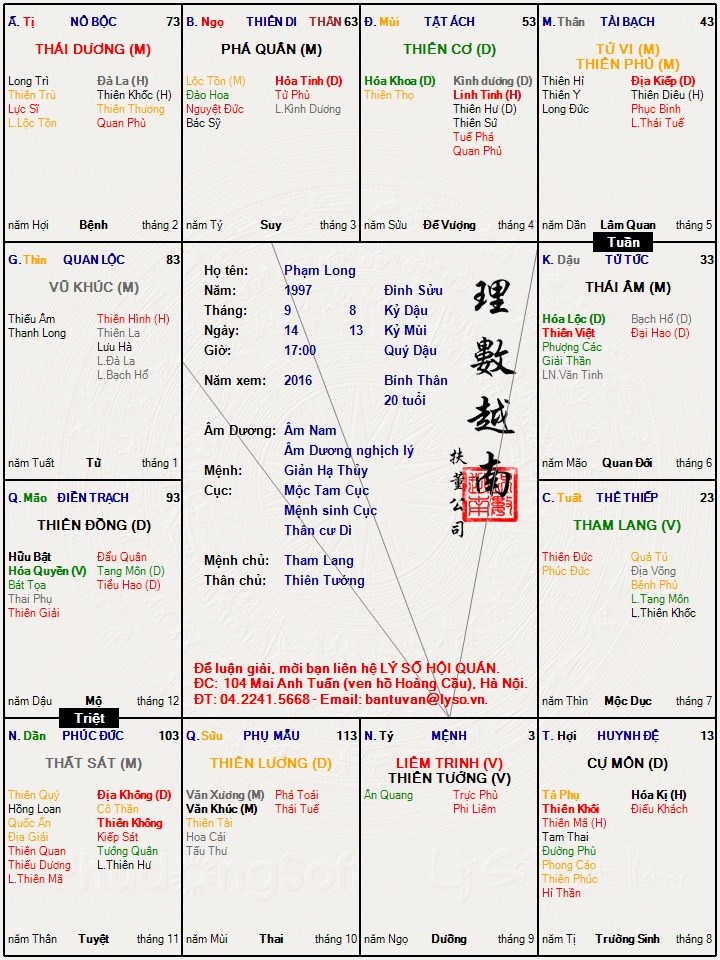 Ấ. Tị NÔ BỘC 73
THÁI DƯƠNG (M)
Long Trì Đà La (H)
Thiên Trù Thiên Khốc (H)
Lực Sĩ Thiên Thương
L.Lộc Tồn Quan Phù
năm Hợi Bệnh tháng 2
B. Ngọ THIÊN DI THÂN 63
PHÁ QUÂN (M)
Lộc Tồn (M) Hỏa Tinh (D)
Đào Hoa Tử Phù
Nguyệt Đức L.Kình Dương
Bác Sỹ
năm Tý Suy tháng 3
Đ. Mùi TẬT ÁCH 53
THIÊN CƠ (D)
Hóa Khoa (D) Kình dương (D)
Thiên Thọ Linh Tinh (H)
Thiên Hư (D)
Thiên Sứ
Tuế Phá
Quan Phủ
năm Sửu Đế Vượng tháng 4
M. Thân TÀI BẠCH 43
TỬ VI (M)
THIÊN PHỦ (M)
Thiên Hỉ Địa Kiếp (D)
Thiên Y Thiên Diêu (H)
Long Đức Phục Binh
L.Thái Tuế
năm Dần Lâm Quan tháng 5
Tuần
G. Thìn QUAN LỘC 83
VŨ KHÚC (M)
Thiếu Âm Thiên Hình (H)
Thanh Long Thiên La
Lưu Hà
L.Đà La
L.Bạch Hổ
năm Tuất Tử tháng 1
Họ tên: Phạm Long
Năm: 1997 Đinh Sửu
Tháng: 9 8 Kỷ Dậu
Ngày: 14 13 Kỷ Mùi
Giờ: 17:00 Quý Dậu
Năm xem: 2016 Bính Thân
20 tuổi
Âm Dương: Âm Nam
Âm Dương nghịch lý
Mệnh: Giản Hạ Thủy
Cục: Mộc Tam Cục
Mệnh sinh Cục
Thân cư Di
Mệnh chủ: Tham Lang
Thân chủ: Thiên Tướng
理數越南
扶董公司
Để luận giải, mời bạn liên hệ LÝ SỐ HỘI QUÁN.
ĐC: 104 Mai Anh Tuấn (ven hồ Hoàng Cầu), Hà Nội.
ĐT: 04.2241.5668 - Email: bantuvan@lyso.vn.
K. Dậu TỬ TỨC 33
THÁI ÂM (M)
Hóa Lộc (D) Bạch Hổ (D)
Thiên Việt Đại Hao (D)
Phượng Các
Giải Thần
LN.Văn Tinh
năm Mão Quan Đới tháng 6
Q. Mão ĐIỀN TRẠCH 93
THIÊN ĐỒNG (D)
Hữu Bật Đẩu Quân
Hóa Quyền (V) Tang Môn (D)
Bát Tọa Tiểu Hao (D)
Thai Phụ
Thiên Giải
năm Dậu Mộ tháng 12
Triệt
C. Tuất THÊ THIẾP 23
THAM LANG (V)
Thiên Đức Quả Tú
Phúc Đức Địa Võng
Bệnh Phù
L.Tang Môn
L.Thiên Khốc
năm Thìn Mộc Dục tháng 7
N. Dần PHÚC ĐỨC 103
THẤT SÁT (M)
Thiên Quý Địa Không (D)
Hồng Loan Cô Thần
Quốc Ấn Thiên Không
Địa Giải Kiếp Sát
Thiên Quan Tướng Quân
Thiếu Dương L.Thiên Hư
L.Thiên Mã
năm Thân Tuyệt tháng 11
Q. Sửu PHỤ MẪU 113
THIÊN LƯƠNG (D)
Văn Xương (M) Phá Toái
Văn Khúc (M) Thái Tuế
Thiên Tài
Hoa Cái
Tấu Thư
năm Mùi Thai tháng 10
N. Tý MỆNH 3
LIÊM TRINH (V)
THIÊN TƯỚNG (V)
Ân Quang Trực Phù
Phi Liêm
năm Ngọ Dưỡng tháng 9
T. Hợi HUYNH ĐỆ 13
CỰ MÔN (D)
Tả Phụ Hóa Kị (H)
Thiên Khôi Điếu Khách
Thiên Mã (H)
Tam Thai
Đường Phù
Phong Cáo
Thiên Phúc
Hỉ Thần
năm Tị Trường Sinh tháng 8